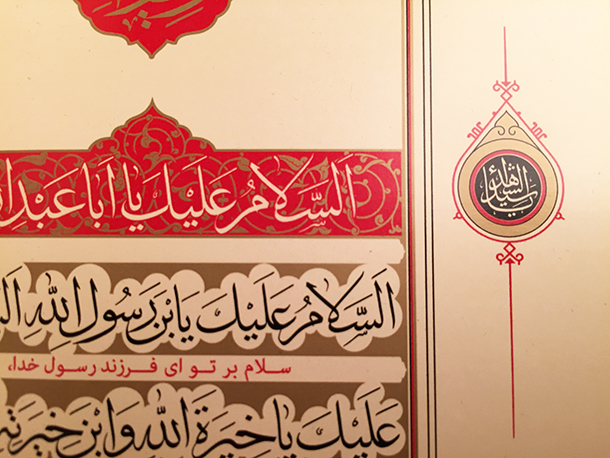 اَلسَّلامُ عَلَيْكَ يا اَبا عَبْدِ
سيد الشهداء
اَلسَّلامُ عَلَيْكَ يَا بْنَ رَسُولِ اللّٰهِ
سلام بر تو ای فرزند رسول خدا،
عَلَيْكَ يا خِيَرَةَ اللّٰهِ وَابْنَ خِيَرَتِ